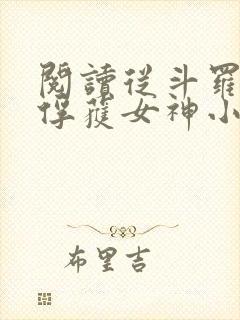 閱讀從斗羅
俘獲女神小
布里吉